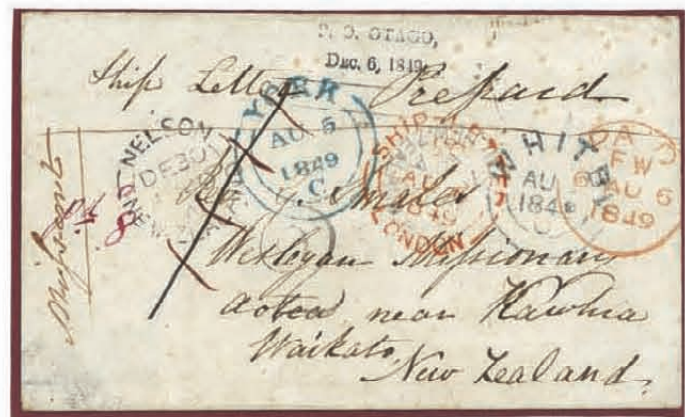 P. O. OTAGO,
Dec. 6, 1849.
Ship Letter Prepaid
NELSON
DE 30
AU 5
1849
C
SHIP LETTER
AU
1849
LONDON
WHITBY
AU
184
PAID
FW
6 AU 6
1849
8
Rev. G. Smales
Wesleyan Missionary
Aotea near Kawhia
Waikato,
New Zealand.